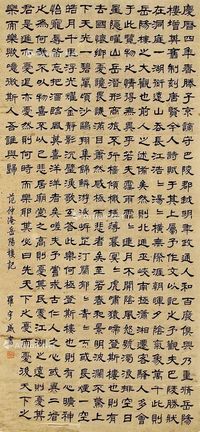 慶曆四年春滕子京謫守巴陵郡越明年政通人和百廢俱興乃重修岳陽
樓增其舊制刻唐賢今人詩賦于其上屬予作文以記之予觀夫巴陵勝狀
在洞庭一湖銜遠山吞長江浩〻湯〻橫無際涯朝暉夕陰氣象萬千此則
岳陽樓之大觀也前人之述備矣然則北通巫峽南極瀟湘遷客騷人多會
于此覽物之情得無異乎若夫霪雨霏〻連月不開陰風怒號濁浪排空日
星隱曜山岳潛形商旅不行檣傾楫摧薄暮冥〻虎嘯猿啼登斯樓也則有
去國懷鄉憂讒畏譏滿目蕭然感極而悲者矣至若春和景明波瀾不驚上
下天光一碧萬頃沙鷗翔集錦鱗游泳岸芷汀蘭郁〻青〻而或長煙一空
皓月千里浮光耀金靜影沉璧漁歌互答此樂何極登斯樓也則有心曠神
怡寵辱皆忘把酒臨風其喜洋〻者矣嗟夫予嘗求古仁人之心或異二者
之為何哉不以物喜不以己悲居廟堂之高則憂其民處江湖之遠則憂其
君是進亦憂退亦憂然則何時而樂耶其必曰先天下之憂而憂後天下之
樂而樂歟噫微斯人吾誰與歸
范仲淹岳陽樓記